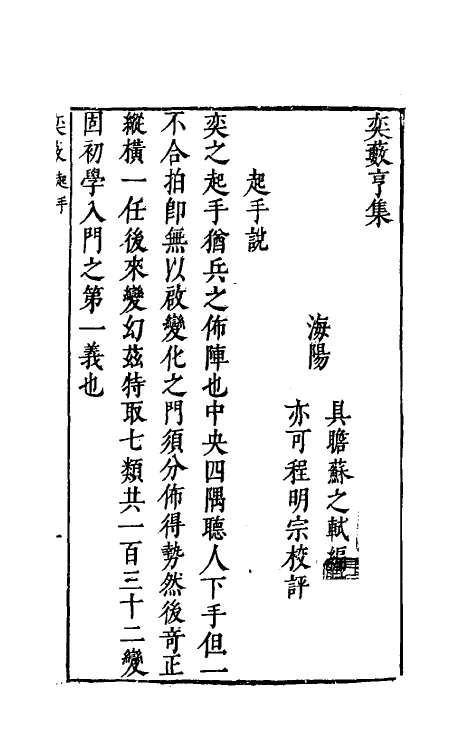 奕藪亨集
海陽
具瞻蘇之軾編
亦可程明宗校評
起手説
奕之起手猶兵之佈陣也中央四隅聽人下手但一
不合拍卽無以啟變化之門須分佈得勢然後竒正
縱橫一任後來變幻茲特取七類共一百三十二變
固初學入門之第一義也
奕藪 起手